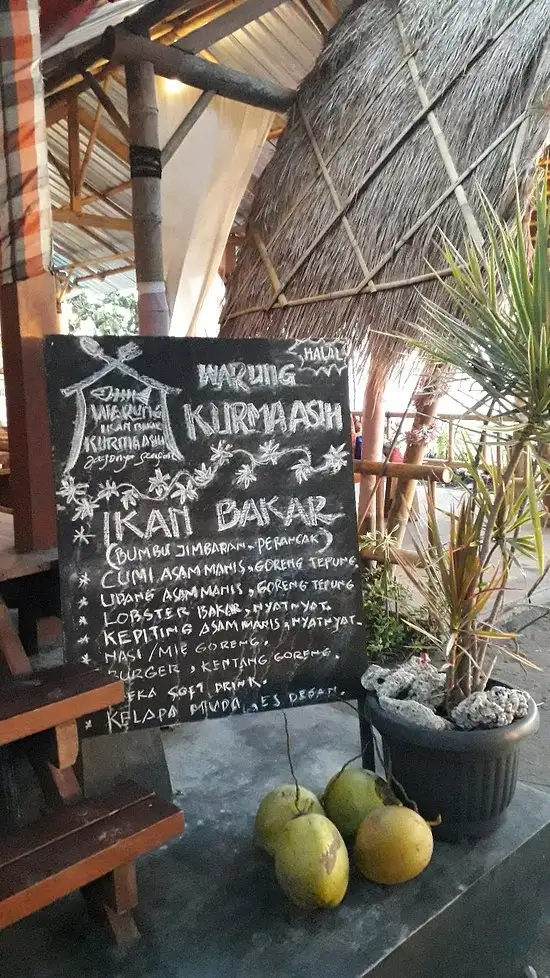 HALAL
WARUNG
KURMA ASIH
WARUNG
IKAN BAKAR
KURMA ASIH
IKAN BAKAR
(BUMBU JIMBARAN, PERANCAK)
* CUMI ASAM MANIS, GORENG TEPUNG
* UDANG ASAM MANIS, GORENG TEPUNG
* LOBSTER BAKAR, NYATNYAT.
* KEPITING ASAM MANIS, NYATNYAT.
* NASI/MIE GORENG.
* BURGER, KENTANG GORENG.
EKA SOFT DRINK.
* KELAPA MUDA, ES DEGAN.